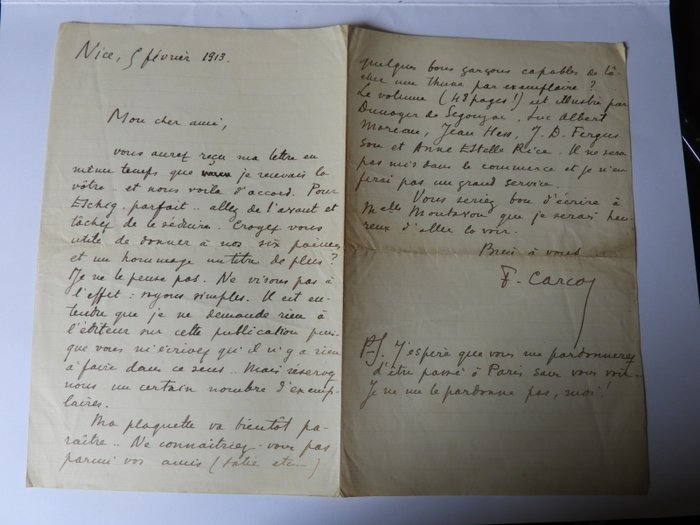 Nice, 5 février 1913.
Mon cher ami,
vous aurez reçu ma lettre en
même temps que je recevais la
vôtre. et nous voilà d'accord. Pour
Eschig, parfait.. allez de l'avant et
tachez de le séduire. Croyez vous
utile de donner à nos six poèmes
et un hommage un titre de plus?
Je ne le pense pas. Ne visons pas à
l'effet: soyons simples. Il est en-
tendu que je ne demande rien à
l'éditeur sur cette publication puis-
que vous m'écrivez qu'il n'y a rien
à faire dans ce sens.. Mais réservez
nous un certain nombre d'exemp-
laires.
Ma plaquette va bientôt pa-
raître.. Ne connaitriez-vous pas
parmi vos amis (Satie etc...)
quelques bons garçons capables de lâ-
cher une thune par exemplaire?
Le volume (48 pages!) est illustré par
Dunoyer de Segonzac. Luc Albert
Moreau, Jean Hess, J. D. Fergus
son et Anne Estelle Rice. Il ne sera
pas mis dans le commerce et je n'en
ferai pas un grand service.
Vous seriez bon d'écrire à
Melle que je serais heu-
reux d'aller la voir.
Bien à vous
F. Carco
P.S. J'espère que vous me pardonnerez
d'être passé à Paris sans vous voir..
Je ne me le pardonne pas, moi!